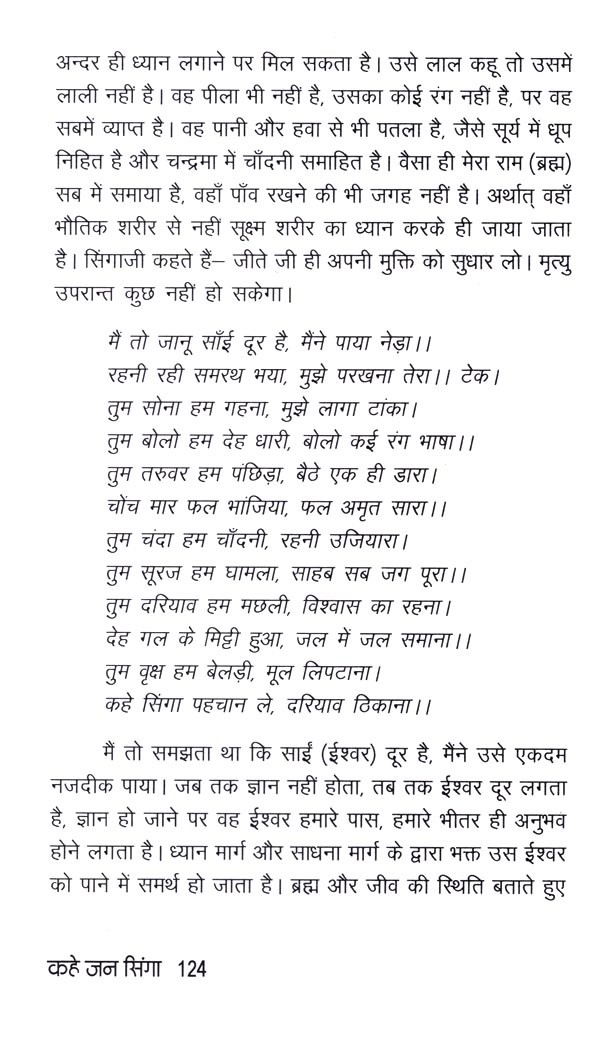 अन्दर ही ध्यान लगाने पर मिल सकता है। उसे लाल कहू तो उसमें
लाली नहीं है। वह पीला भी नहीं है, उसका कोई रंग नहीं है, पर वह
सबमें व्याप्त है। वह पानी और हवा से भी पतला है, जैसे सूर्य में धूप
निहित है और चन्द्रमा में चाँदनी समाहित है। वैसा ही मेरा राम (ब्रह्म)
सब में समाया है, वहाँ पाँव रखने की भी जगह नहीं है। अर्थात् वहाँ
भौतिक शरीर से नहीं सूक्ष्म शरीर का ध्यान करके ही जाया जाता
है। सिंगाजी कहते हैं– जीते जी ही अपनी मुक्ति को सुधार लो। मृत्यु
उपरान्त कुछ नहीं हो सकेगा।
मैं तो जानू साँई दूर है, मैंने पाया नेड़ा।।
रहनी रही समरथ भया, मुझे परखना तेरा।। टेक।
तुम सोना हम गहना, मुझे लागा टांका।
तुम बोलो हम देह धारी, बोलो कई रंग भाषा।।
तुम तरुवर हम पंछिड़ा, बैठे एक ही डारा।
चोंच मार फल भांजिया, फल अमृत सारा।।
तुम चंदा हम चाँदनी, रहनी उजियारा।
तुम सूरज हम घामला, साहब सब जग पूरा।।
तुम दरियाव हम मछली, विश्वास का रहना।
देह गल के मिट्टी हुआ, जल में जल समाना।।
तुम वृक्ष हम बेलड़ी, मूल लिपटाना।
कहे सिंगा पहचान ले, दरियाव ठिकाना।।
मैं तो समझता था कि साईं (ईश्वर) दूर है, मैंने उसे एकदम
नजदीक पाया। जब तक ज्ञान नहीं होता, तब तक ईश्वर दूर लगता
है, ज्ञान हो जाने पर वह ईश्वर हमारे पास, हमारे भीतर ही अनुभव
होने लगता है। ध्यान मार्ग और साधना मार्ग के द्वारा भक्त उस ईश्वर
को पाने में समर्थ हो जाता है। ब्रह्म और जीव की स्थिति बताते हुए
कहे जन सिंगा 124